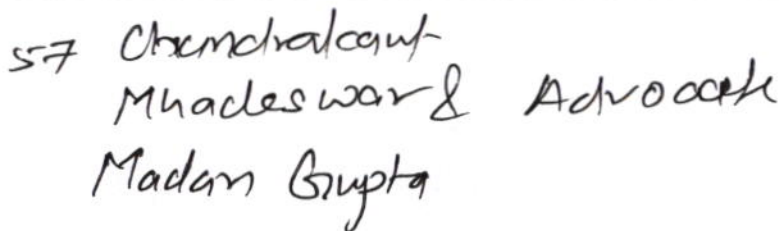 57 Chandrakant
Mhadeswar & Advocate
Madan Gupta